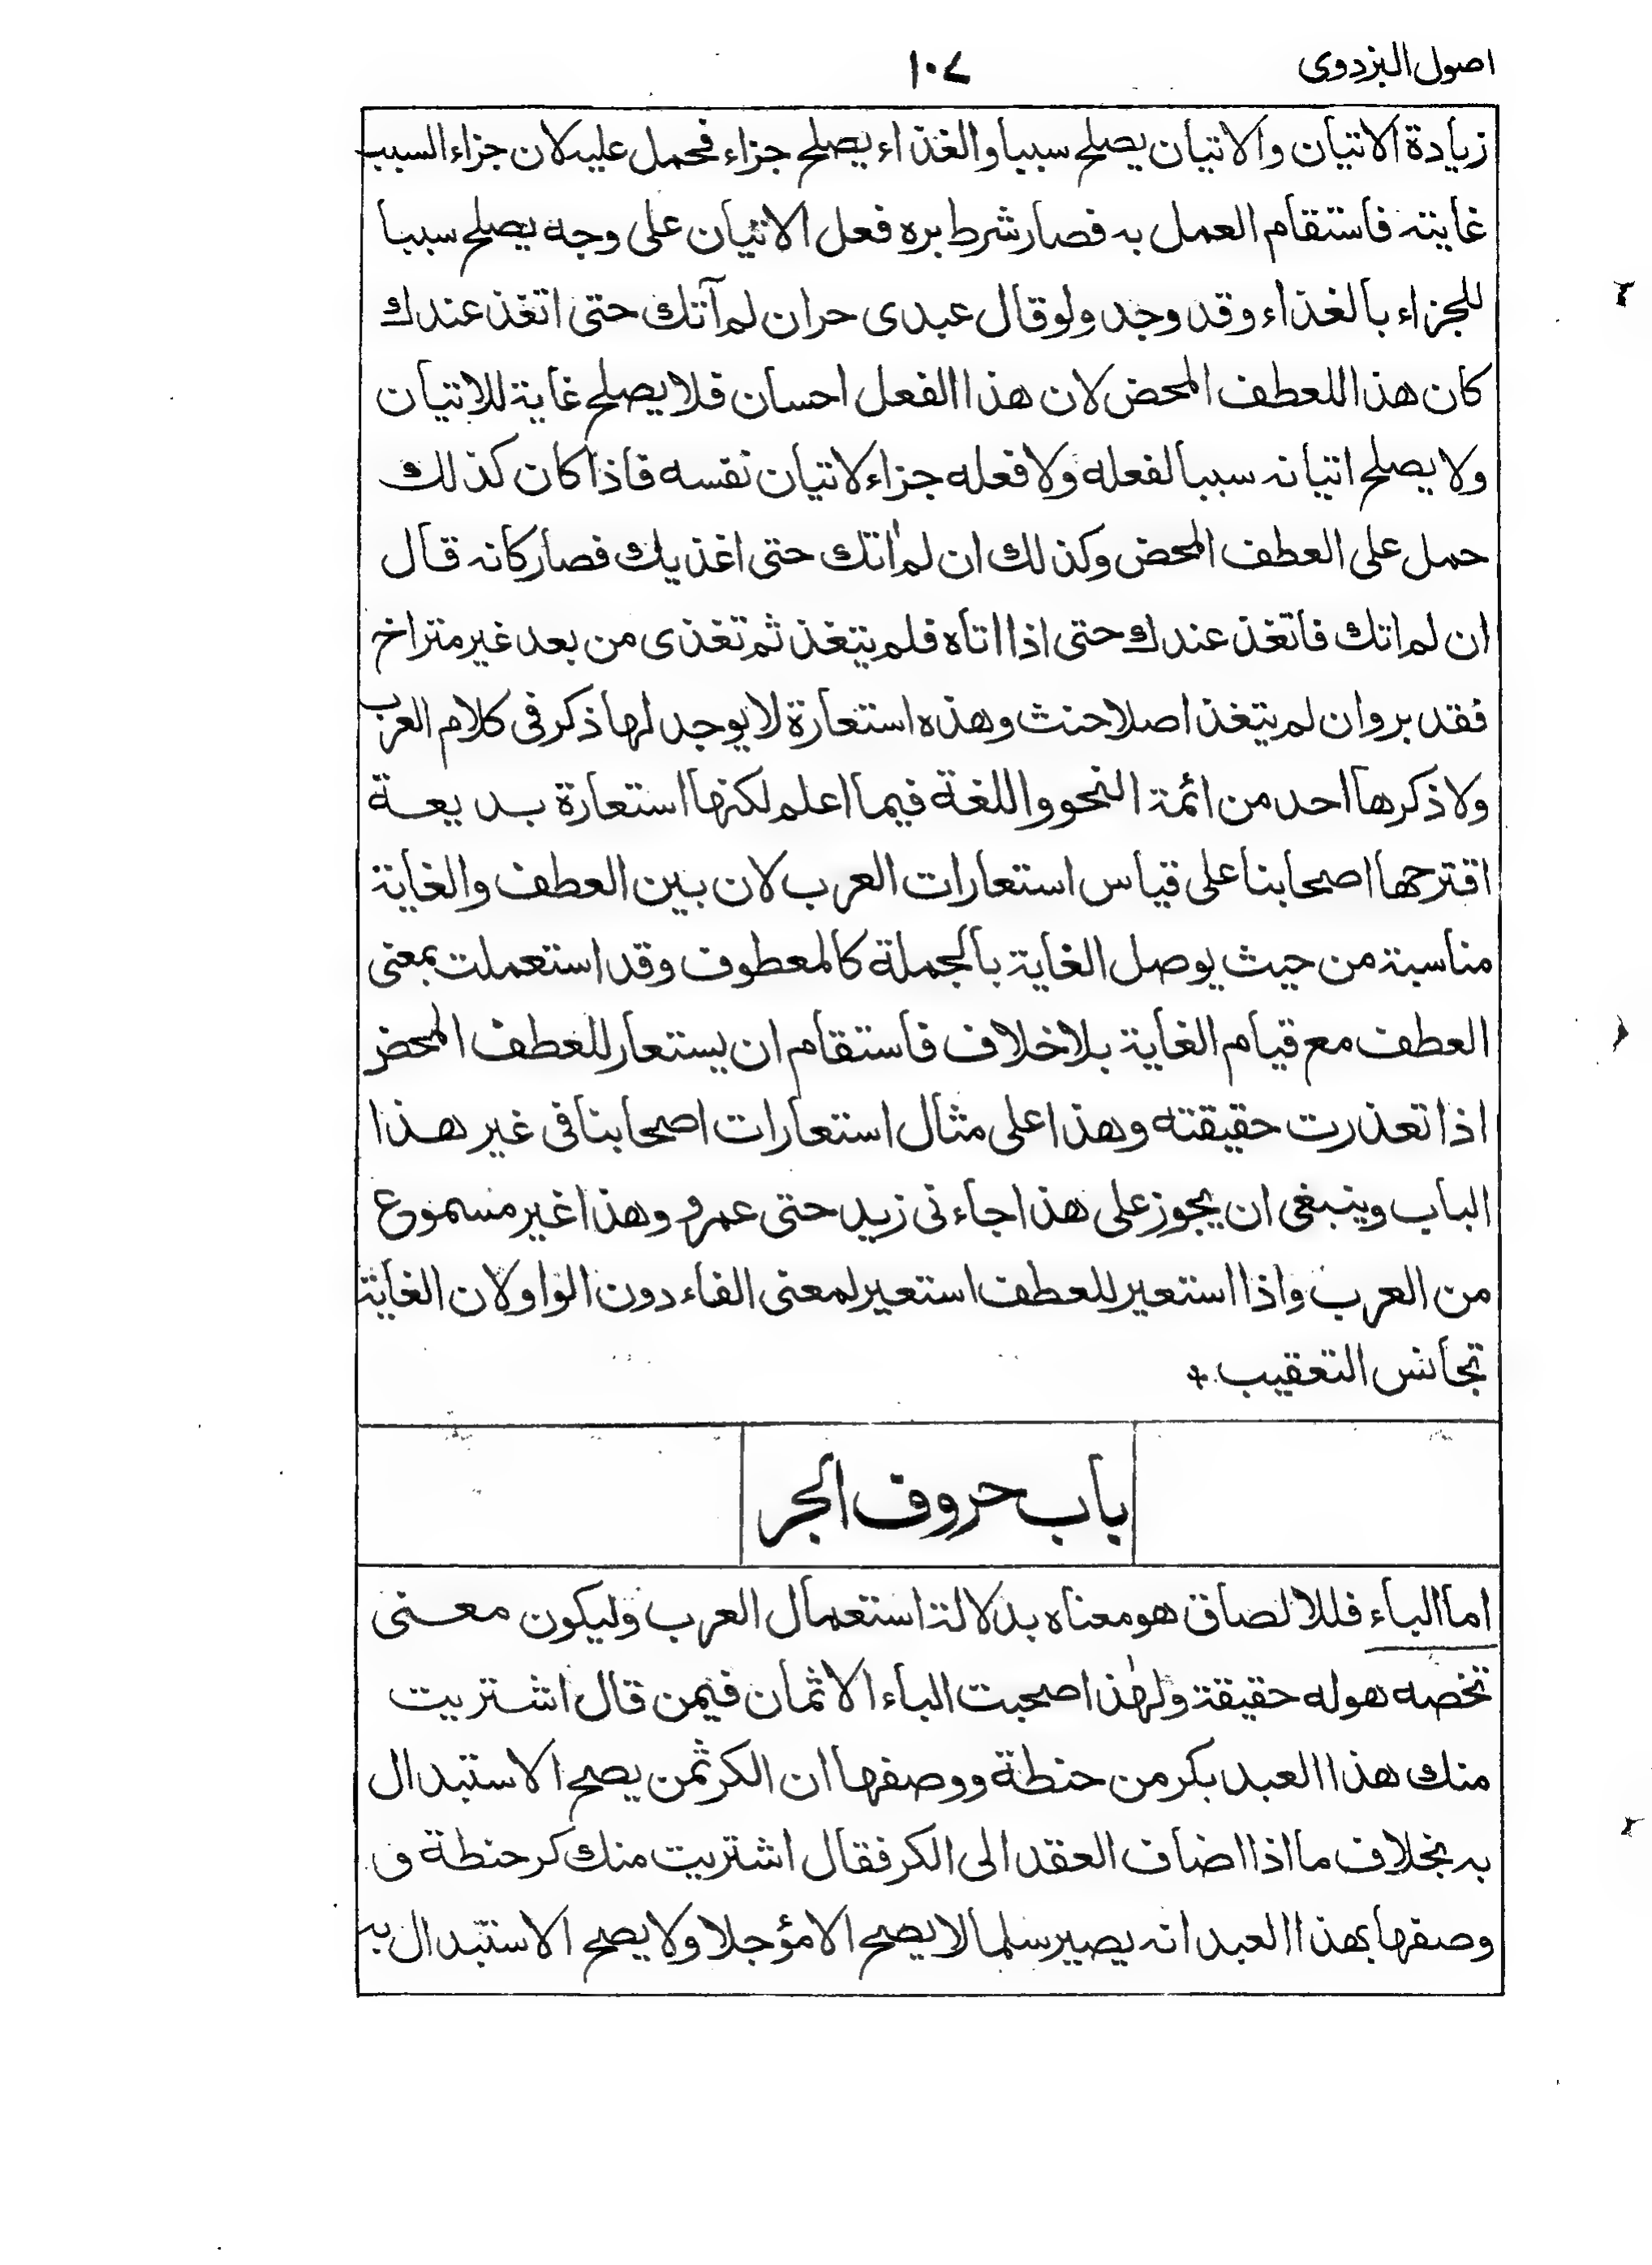 اصول البزدوى
١٠٧
زيادة الاتيان والاتيان يصلح سببا والغذاء يصلح جزاء فحمل عليه لان جزاء السبب
غايته فاستقام العمل به فصار شرط بره فعل الاتيان على وجه يصلح سببا
للجزاء بالغذاء وقد وجد ولو قال عبدى حر ان لم آتك حتى اتغذ عندك
كان هذا للعطف المحض لان هذا الفعل احسان فلا يصلح غاية للاتيان
ولا يصلح اتيانه سببا لفعله ولا فعله جزاء لاتيان نفسه فاذا كان كذلك
حمل على العطف المحض وكذلك ان لم اتك حتى اغذيك فصار كانه قال
ان لم اتك فاتغذ عندك حتى اذا اتاه فلم يتغذ ثم تغذى من بعد غير متراخ
فقد بر وان لم يتغذ اصلا حنث وهذه استعارة لا يوجد لها ذكر فى كلام العرب
ولا ذكرها احد من ائمة النحو واللغة فيما اعلم لكنها استعارة بديعة
اقترحها اصحابنا على قياس استعارات العرب لان بين العطف والغاية
مناسبة من حيث يوصل الغاية بالجملة كالمعطوف وقد استعملت بمعنى
العطف مع قيام الغاية بلا خلاف فاستقام ان يستعار للعطف المحض
اذا تعذرت حقيقته وهذا على مثال استعارات اصحابنا فى غير هذا
الباب وينبغى ان يجوز على هذا جاءنى زيد حتى عمرو وهذا غير مسموع
من العرب واذا استعير للعطف استعير لمعنى الفاء دون الواو لان الغاية
تجانس التعقيب
باب حروف الجر
اما الباء فللالصاق هو معناه بدلالة استعمال العرب وليكون معنى
تخصه هو له حقيقة ولهذا صحبت الباء الاثمان فيمن قال اشتريت
منك هذا العبد بكر من حنطة ووصفها ان الكر ثمن يصح الاستبدال
به بخلاف ما اذا اضاف العقد الى الكر فقال اشتريت منك كر حنطة و
وصفها بهذا العبد انه يصير سلما لا يصح الا مؤجلا ولا يصح الاستبدال به